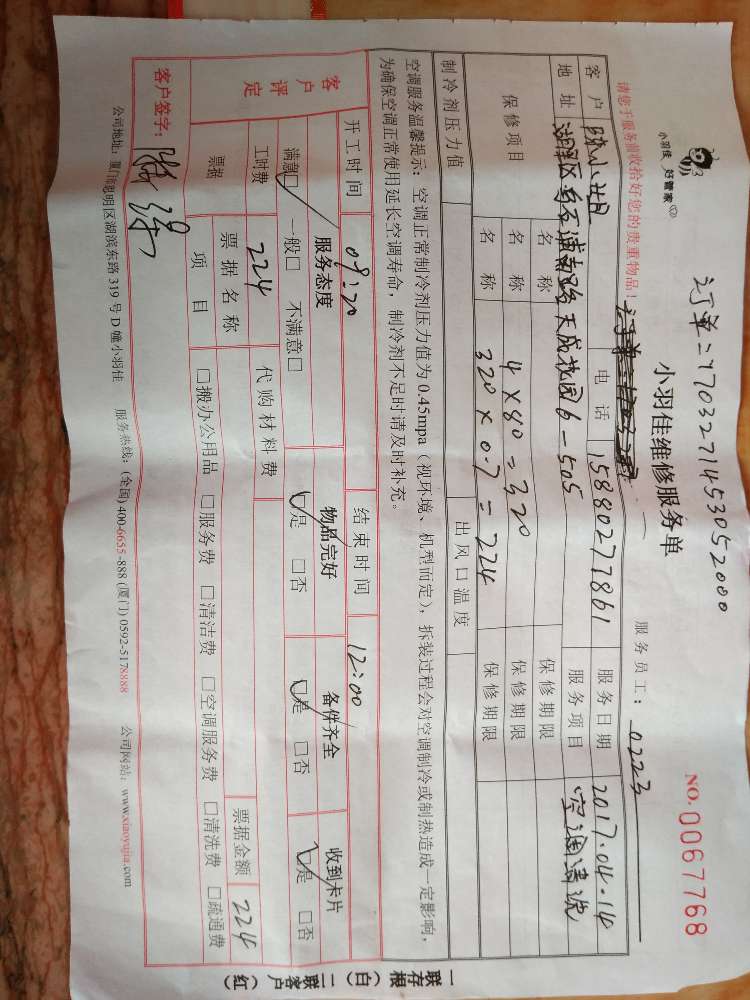 订单=1703271453052000
小羽佳 好管家
小羽佳维修服务单
NO.0067768
请您于服务前收拾好您的贵重物品!
服务员工: 0223
客户 电话 15880277861 服务日期 2017.04.14
地址 湖里区 天成花园6-505 服务项目 空调清洗
保修项目 名称 保修期限
名称 4×80=320 保修期限
名称 320×0.7=224 保修期限
制冷剂压力值 出风口温度
空调服务温馨提示:空调正常制冷剂压力值为0.45mpa(视环境、机型而定),拆装过程会对空调制冷或制热造成一定影响,
为确保空调正常使用延长空调寿命,制冷剂不足时请及时补充。
开工时间 09:20 结束时间 12:00
客户评定 服务态度 物品完好 备件齐全 收到卡片
满意□ 一般□ 不满意□ □是 □否 □是 □否 □是 □否
工时费 224 代购材料费
票据 票据名称 票据金额 224
项目 □搬办公用品 □服务费 □清洁费 □空调服务费 □清洗费 □疏通费
客户签字:
公司地址:厦门市思明区湖滨东路319号D幢小羽佳 服务热线:(全国)400-6655-888(厦门)0592-5178888 公司网站:www.xiaoyujia.com
一联存根(白)二联客户(红)